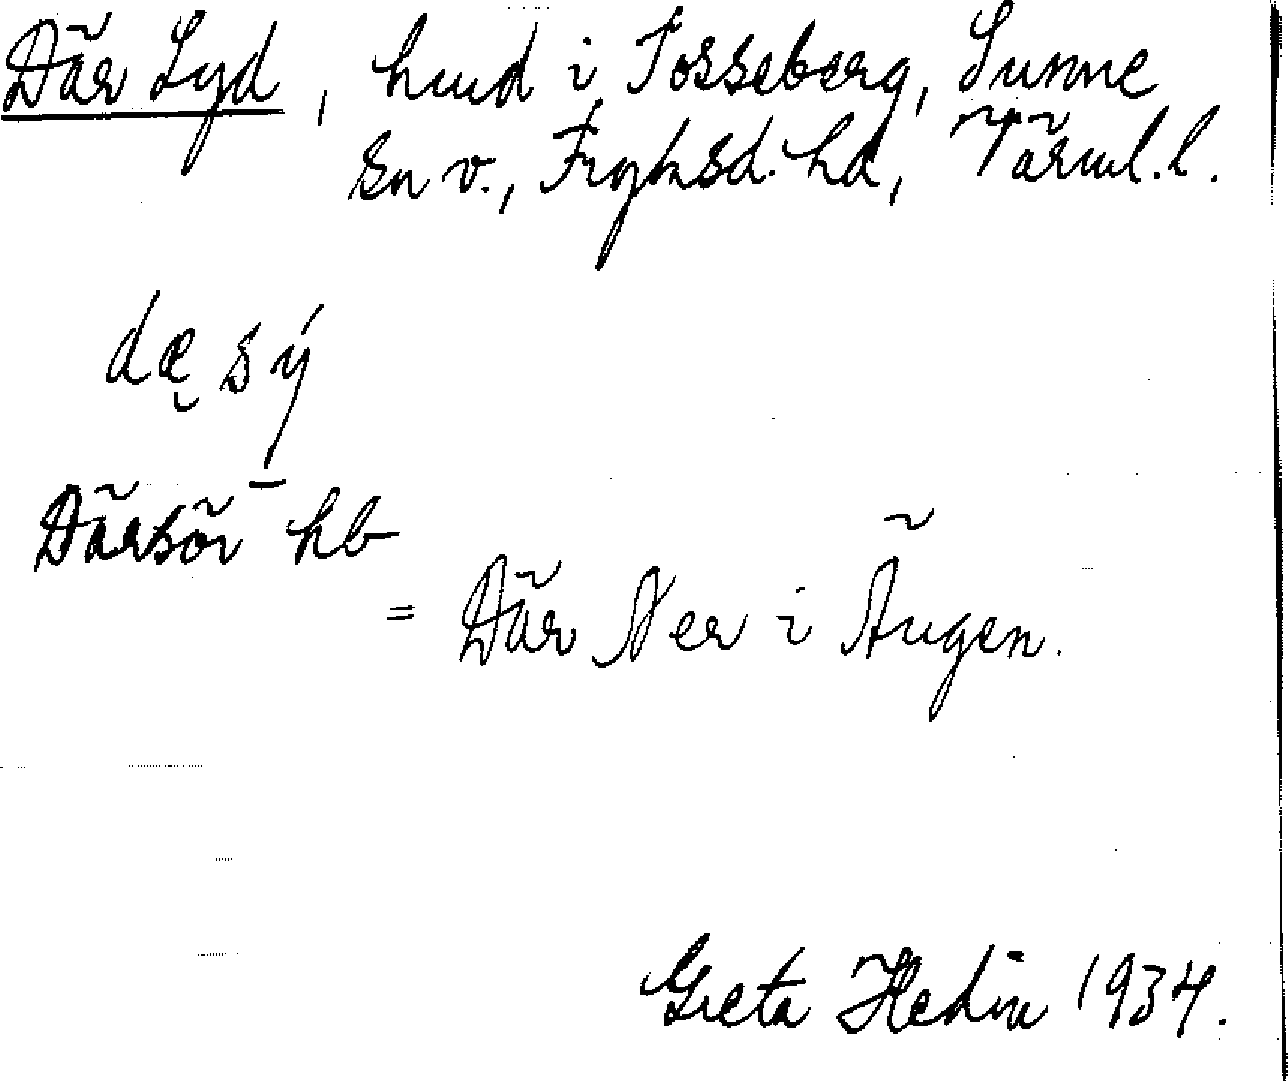 Där Syd, hmd i Tosseberg, Sunne
sn v., Fryksd. hd, Värml. l.
dæ̨ sý
Därsör hb
= Där Ner i Ängen.
Greta Hedin 1934.